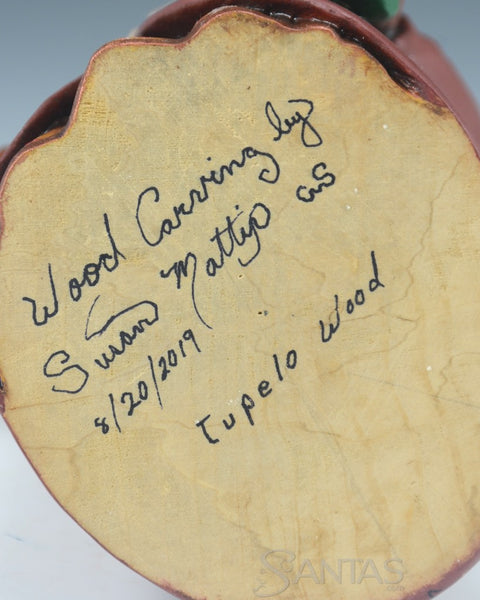 Wood Carving by
Susan Mattip
8/20/2019
Tupelo Wood
SANTAS
.com